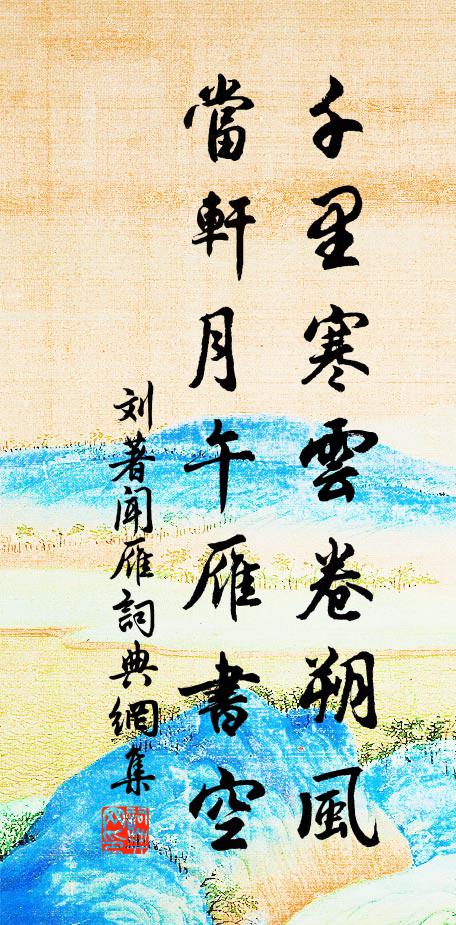 千里寒雲卷朔風
當軒月午雁書空
刘著闻雁詞典網集